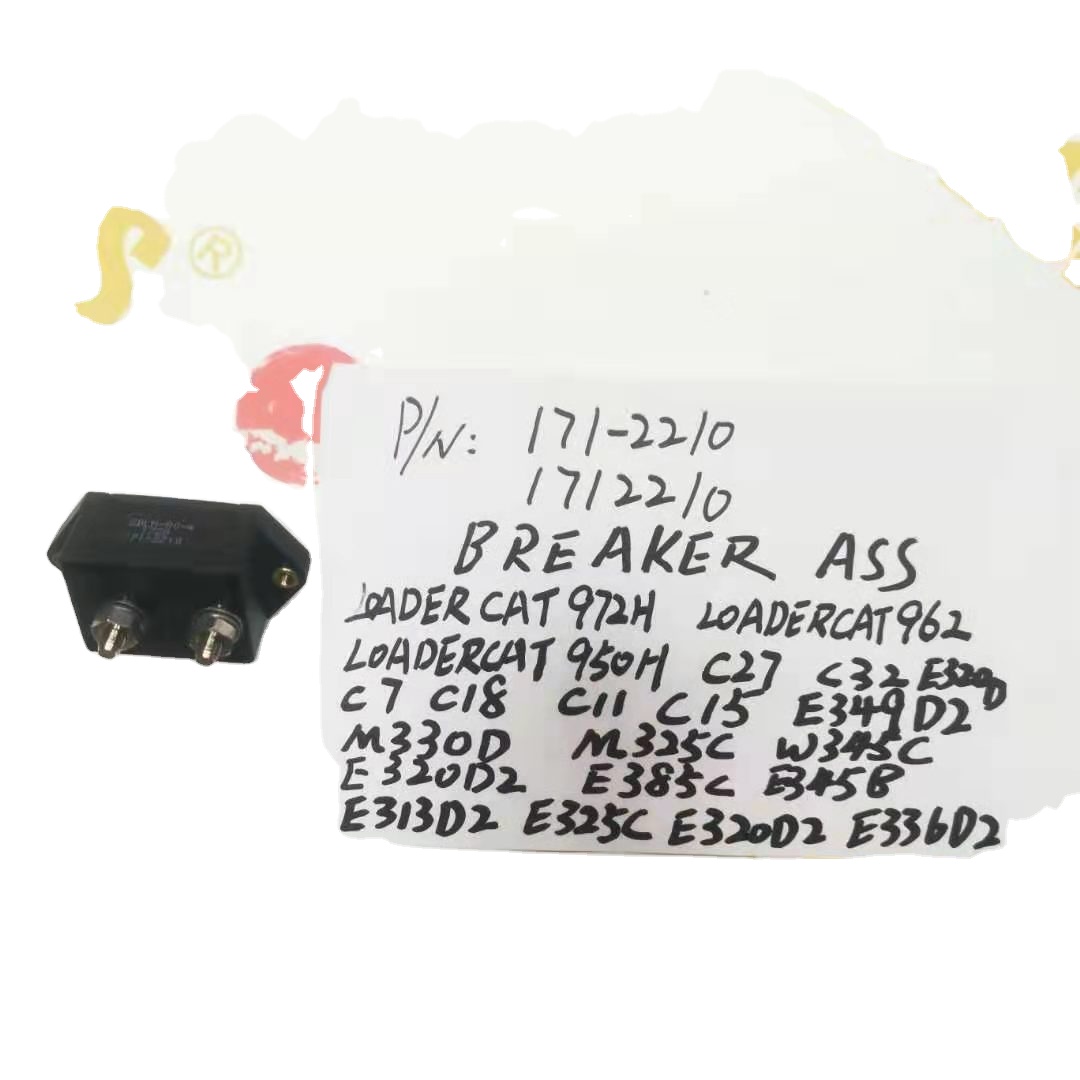 ®
P/N: 171-2210
1712210
BREAKER ASS
LOADER CAT 972H LOADERCAT 962
LOADERCAT 950H C27 C32 E320D
C7 C18 C11 C15 E349D2
M330D M325C W345C
E320D2 E385C E345B
E313D2 E325C E320D2 E336D2